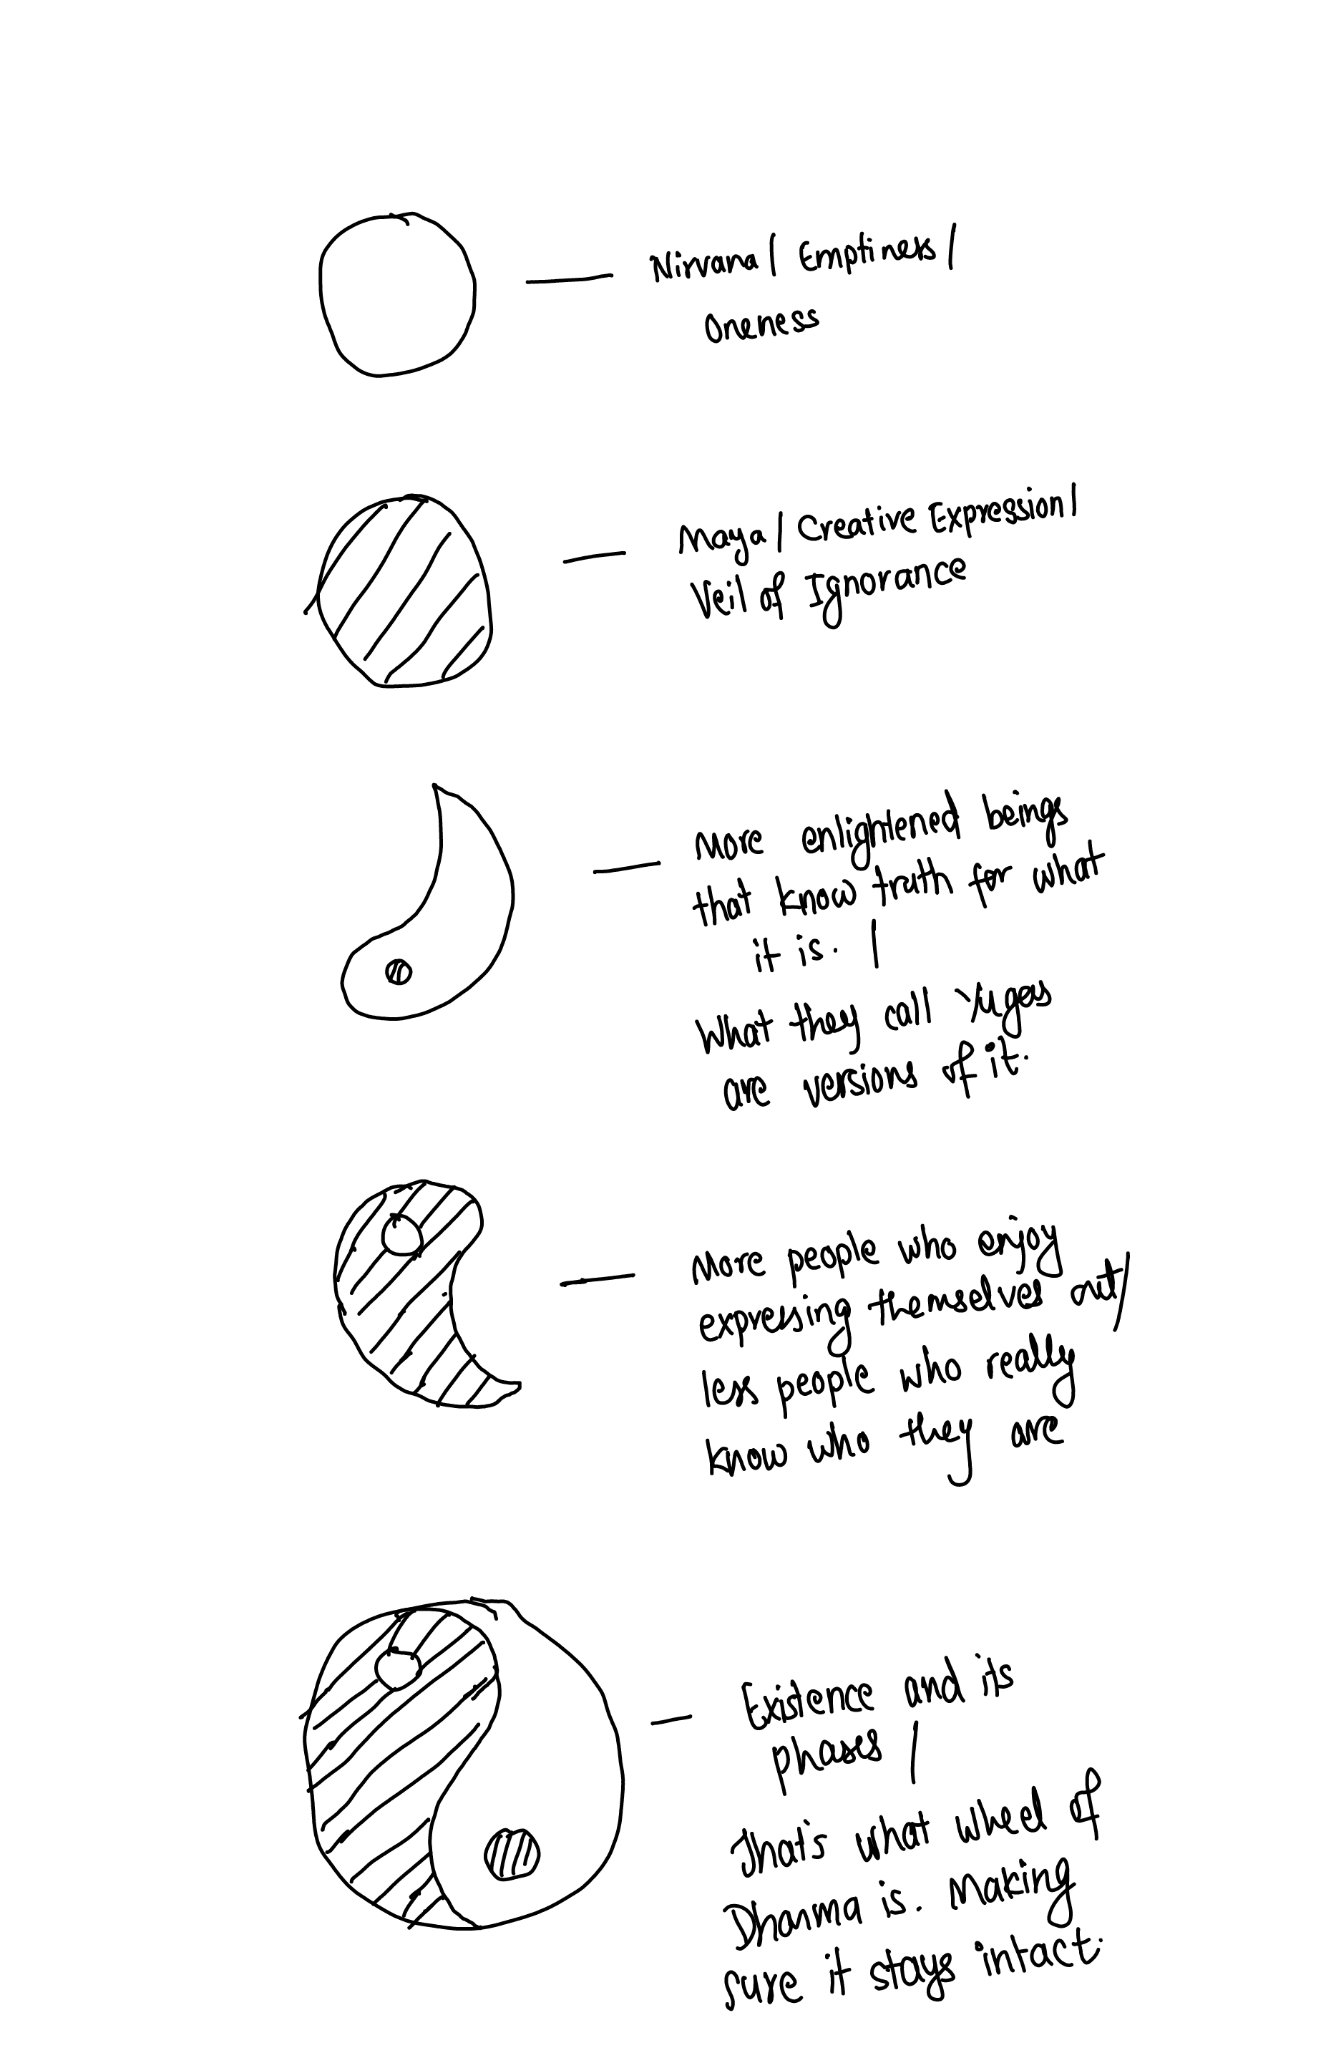 Nirvana / Emptiness /
Oneness
Maya / Creative Expression /
Veil of Ignorance
More enlightened beings
that know truth for what
it is. /
What they call Yugas
are versions of it.
More people who enjoy
expressing themselves out /
less people who really
know who they are
Existence and its
phases /
That's what wheel of
Dharma is. Making
sure it stays intact.